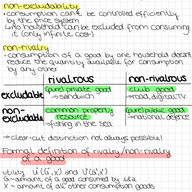 non-excludability
• consumption can't be controlled efficiently
by the price system
↳ no individual can be excluded from consuming
it (only infinite cost)
non-rivalry
• consumption of a good by one household doesn't
reduce the quantity available for consumption
by any other
rivalrous non-rivalrous
excludable (pure) private good club good
→ sandwich → road, digital TV
non-excludable common property resource (pure) public good
→ fishing in the sea → national defence
→ clear-cut distinction not always possible!
Formal definition of rivalry/non-rivalry
of a good
utility: U¹(G,X) and U²(G,X)
G = amount of a good consumed by 1&2
X = amount of all other consumption goods